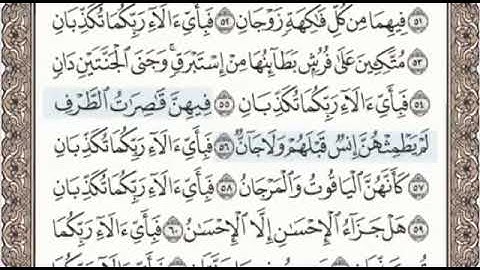 فِيهِمَا مِن كُلِّ فَٰكِهَةٍ زَوْجَانِ ٥٢ فَبِأَيِّ ءَالَآءِ رَبِّكُمَا تُكَذِّبَانِ ٥١
مُتَّكِـِٔينَ عَلَىٰ فُرُشٍۭ بَطَآئِنُهَا مِنْ إِسْتَبْرَقٍۚ وَجَنَى ٱلْجَنَّتَيْنِ دَانٍ ٥٣
فَبِأَيِّ ءَالَآءِ رَبِّكُمَا تُكَذِّبَانِ ٥٥ فِيهِنَّ قَٰصِرَٰتُ ٱلطَّرْفِ ٥٤
لَمْ يَطْمِثْهُنَّ إِنسٌ قَبْلَهُمْ وَلَا جَآنٌّ ٥٦ فَبِأَيِّ ءَالَآءِ رَبِّكُمَا تُكَذِّبَانِ
كَأَنَّهُنَّ ٱلْيَاقُوتُ وَٱلْمَرْجَانُ ٥٨ فَبِأَيِّ ءَالَآءِ رَبِّكُمَا تُكَذِّبَانِ ٥٧
هَلْ جَزَآءُ ٱلْإِحْسَٰنِ إِلَّا ٱلْإِحْسَٰنُ ٦٠ فَبِأَيِّ ءَالَآءِ رَبِّكُمَا ٥٩